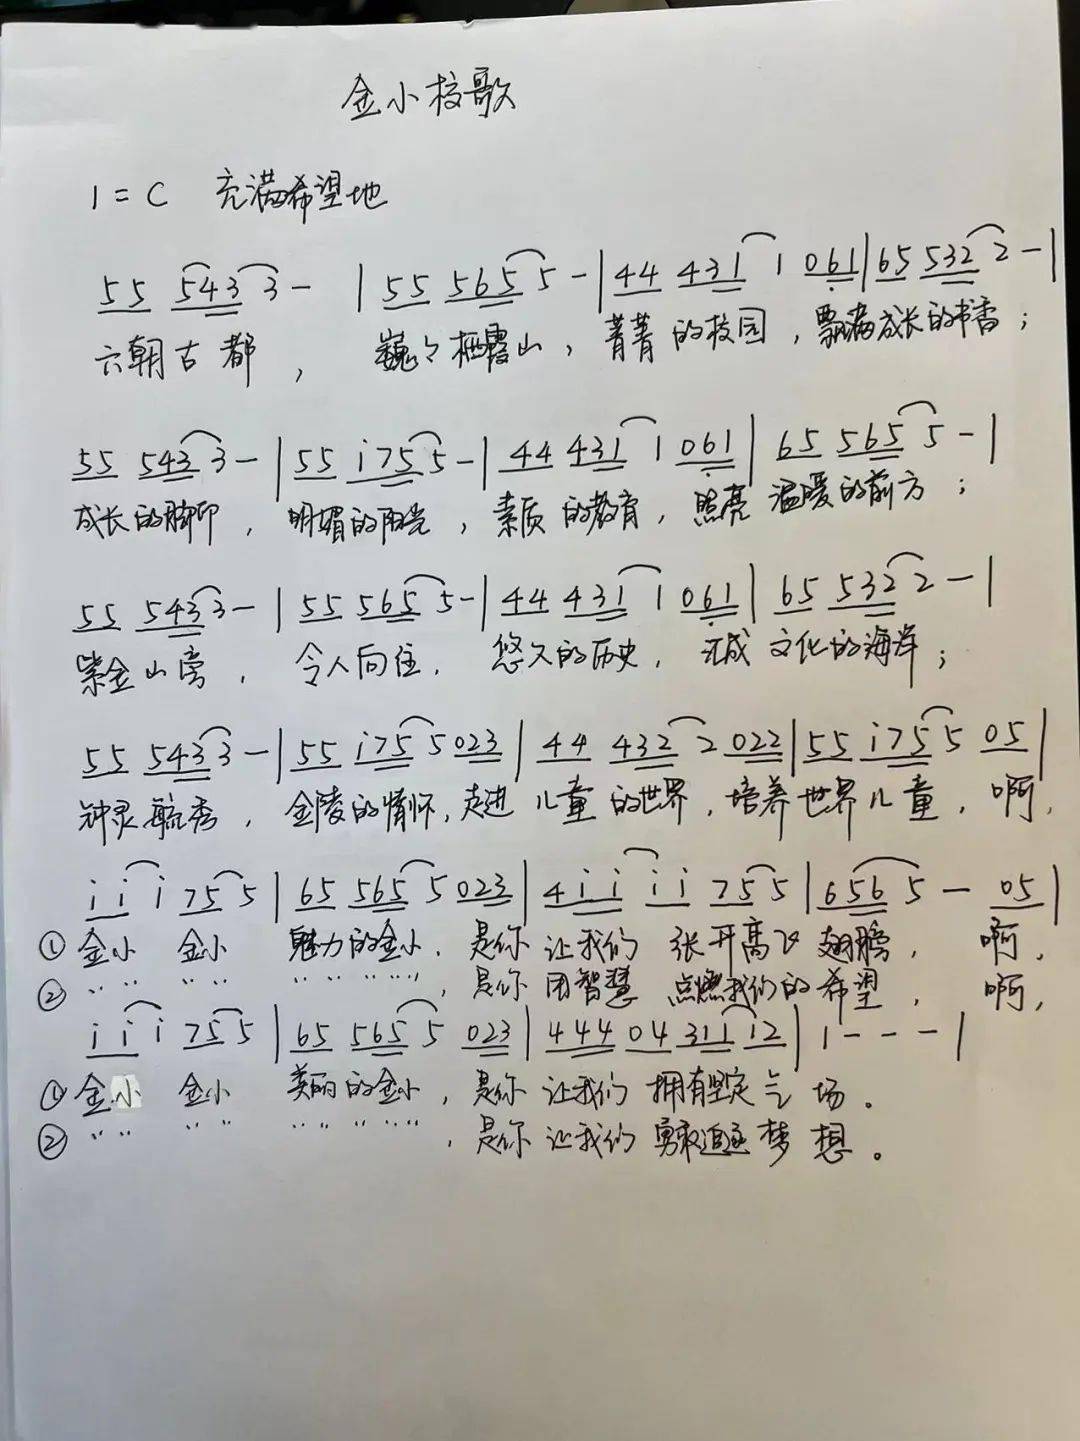 金小校歌
1=C 充满希望地
55 543 3- | 55 565 5- | 44 431 1 061 | 65 532 2- |
六朝古都， 巍々栖霞山，菁菁的校园，飘满成长的书香；
55 543 3- | 55 i75 5- | 44 431 1 061 | 65 565 5- |
成长的脚印，明媚的阳光，素质的教育，照亮温暖的前方；
55 543 3- | 55 565 5- | 44 431 1 061 | 65 532 2- |
紫金山旁，令人向往，悠久的历史，汇成文化的海洋；
55 543 3- | 55 i75 5 023 | 44 432 2 022 | 55 i75 5 05 |
钟灵毓秀，金陵的情怀，走进儿童的世界，培养世界儿童，啊，
i i i 75 5 | 65 565 5 023 | 4 i i i i 75 5 | 656 5 - 05 |
① 金小 金小 魅力的金小，是你让我们 张开高飞翅膀，啊，
② 〃〃 〃〃 〃〃〃〃〃，是你用智慧 点燃我们的希望，啊，
i i i 75 5 | 65 565 5 023 | 444 04 311 12 | 1 - - - |
① 金小 金小 美丽的金小，是你让我们 拥有坚定气场。
② 〃〃 〃〃 〃〃〃〃〃，是你让我们 勇敢追逐梦想。